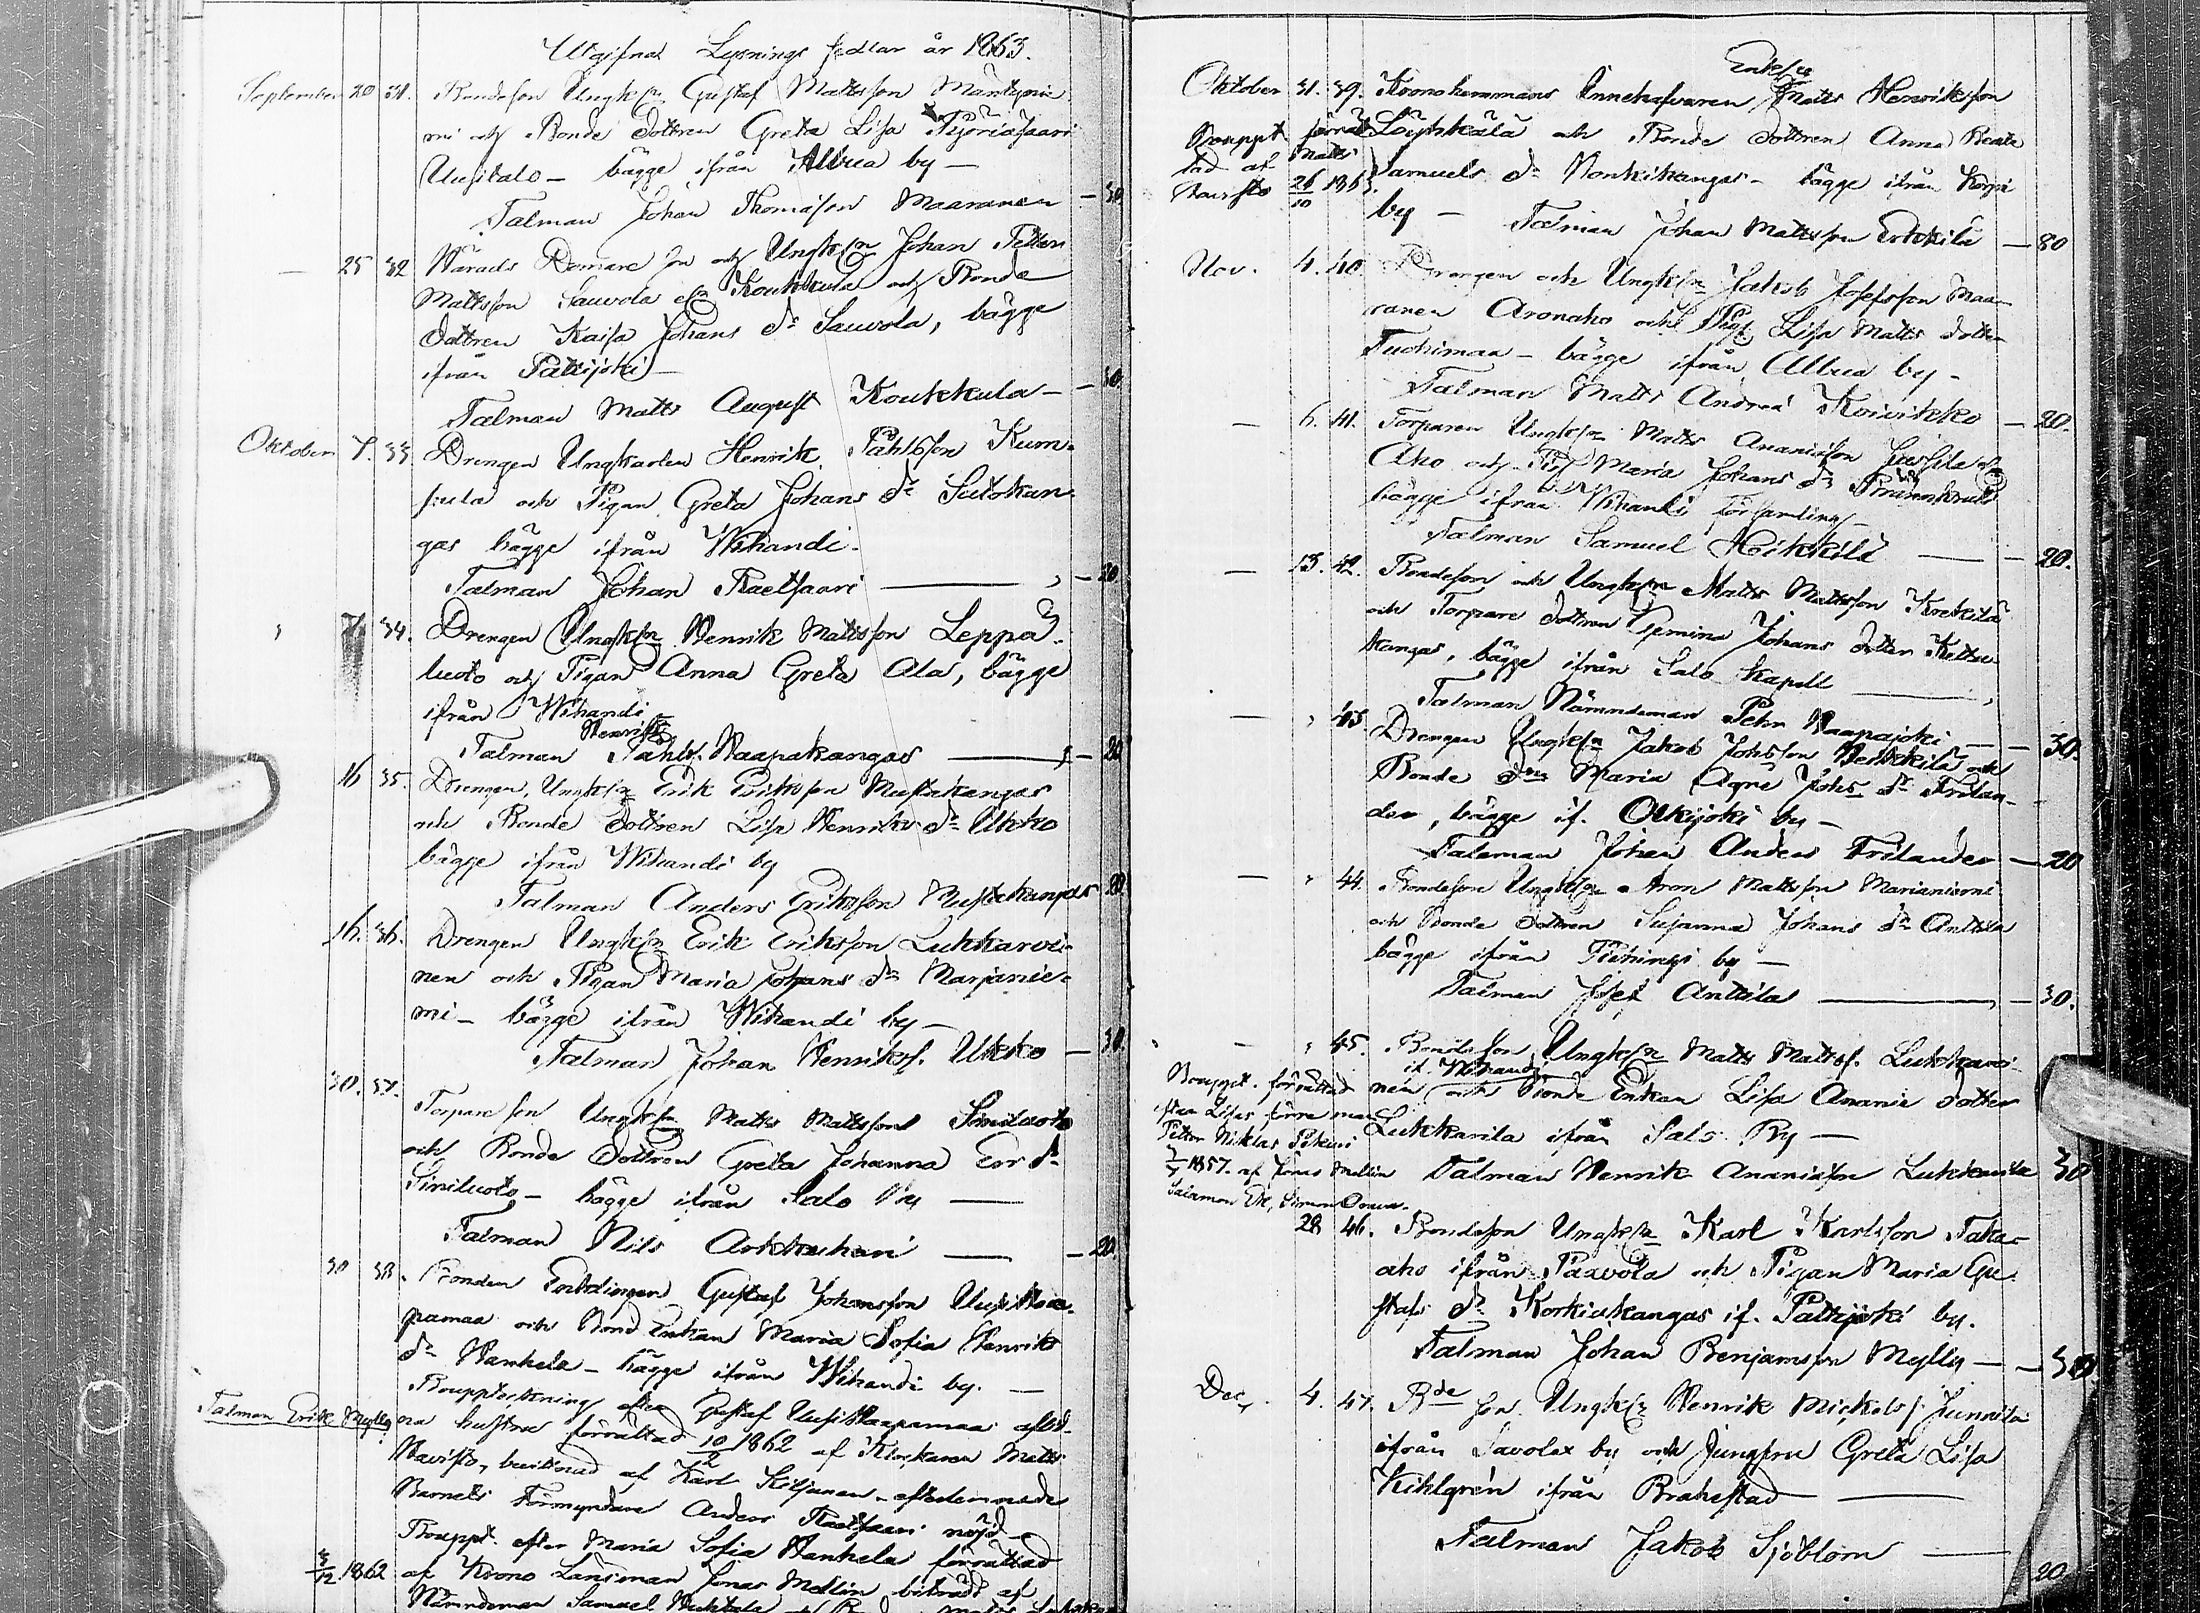 Utgifna Lysnings sedlar år 1863.
September 20 31. Bondeson Ungk:n Gustaf Mattsson Mäntynie
mi och Bonde dottren Greta Lisa
Uusitalo – bägge ifrån Alhua by –
Talman Johan Thomasson Maaranen – 30
– 25 32 Härads Domare son och Ungk:n Johan Petter
Mattsson Sauvola eller Koukkula och Bonde
dottren Kaisa Johans dr Sauvola, bägge
ifrån Pattijoki –
Talman Matts August Koukkula – 30.
Oktober 7. 33 Drengen Ungkarlen Henrik Påhlsson Kum-
pula och Pigan Greta Johans dr Salokan-
gas bägge ifrån Wihandi.
Talman Johan Raelsaari – 20
7. 34. Drengen Ungk:n Henrik Mattsson Leppä-
luoto och Pigan Anna Greta Ala, bägge
ifrån Wihandi
Henrik
Talman Påhls. Haapakangas – 20
16 35. Drengen, Ungk:n Erik Eriksson Mustakangas
och Bonde dottren Lisa Henriks dr Ukko
bägge ifrån Wihandi by
Talman Anders Eriksson Mustakangas 20
16. 36. Drengen Ungk:n Erik Eriksson Lukkaroi-
nen och Pigan Maria Johans dr Marjanie-
mi – bägge ifrån Wihandi by –
Talman Johan Henriks. Ukko – 30.
30. 37. Torpare son Ungk:n Matts Mattsson Siniluoto
och Bonde Dottren Greta Johanna Er dr
Siniluoto – bägge ifrån Salo by –
Talman Nils Arkkukari – 20.
30 38. Bonden Enklingen Gustaf Johansson Uusi Haa-
pamaa och Bond Enkan Maria Sofia Henriks
dr Hanhela – bägge ifrån Wihandi by. –
Bouppteckning efter Gustaf Uusi Haapamaas afled-
Talman Erik Mylly
na hustru förrättad 10/2 1862 af Klockaren Matts
Navisto, biträdd af Karl Kiljunen – efterlemnade
Barnets Förmyndare Anders Raelsaari nöjd –
Bouppt. efter Maria Sofia Hanhela förrättad
3/12 1862 af Krono Länsman Jonas Mellin biträdd af
Nämndeman Samuel
Oktober 31. 39. Kronohemmans Innehafvaren Enkl:n Matts Henriksson
Löytkälä och Bonde dottren Anna Beata
Samuels dr Honkikangas – bägge ifrån Korpi
by – Talman Johan Mattsson Erkkilä – 30
Bouppt. förrät-
tad af Matts
Navisto 26/10 1863.
Nov. 4. 40. Drengen och Ungk:n Jakob Josefsson Maa-
ranen Aronaho och Pig. Lisa Matts dotter
Tuohimaa – bägge ifrån Alhua by –
Talman Matts Andreä Koivikko – 20.
– 6. 41. Torparen Ungk:n Matts Ananiasson Jussila eller
Aho och Pig. Maria Johans dr
bägge ifrån Wihandi församling –
Talman Samuel Heikkilä – 20.
– 13. 42. Bondeson och Ungk:n Matts Mattsson Krekilä
och Torpare dottren Gemina Johans dotter Kettu-
kangas, bägge ifrån Salo Kapell
Talman Nämndeman Pehr Haapajoki – 30.
– 43. Drengen Ungk:n Jakob Johsson Heikkilä och
Bonde dr Maria Agre Johs dr Frilan-
der, bägge if. Olkijoki by –
Talman Johan Anders Frilander – 20
– 44. Bondeson Ungk:n Aron Mattsson Marianiemi
och Bonde dottren Susanna Johans dr Anttila
bägge ifrån Piehingi by –
Talman Josef Anttila – 30.
45. Bondeson Ungk:n Matts Mattss. Lukkaroi-
if. Wihandi
nen och Bonde Enkan Lisa Anania dotter
Lukkarila ifrån Salo By –
Talman Henrik Ananiasson Lukkarila 30
Bouppt. förrättad
efter Lisas förre man
Petter Niklas Pekuri
1857. af Jonas Mellin
28 46. Bondeson Ungk:n Karl Karlsson Taka-
aho ifrån Paavola och Pigan Maria Gu-
stafs dr Korkiakangas if. Pattijoki by.
Talman Johan Benjamsson Mylly – 30
Dec. 4. 47. Bde son Ungk:n Henrik Mickels s. Junnila
ifrån Savolax by och Jungfru Greta Lisa
Kihlgrén ifrån Brahestad –
Talman Jakob Sjöblom – 20